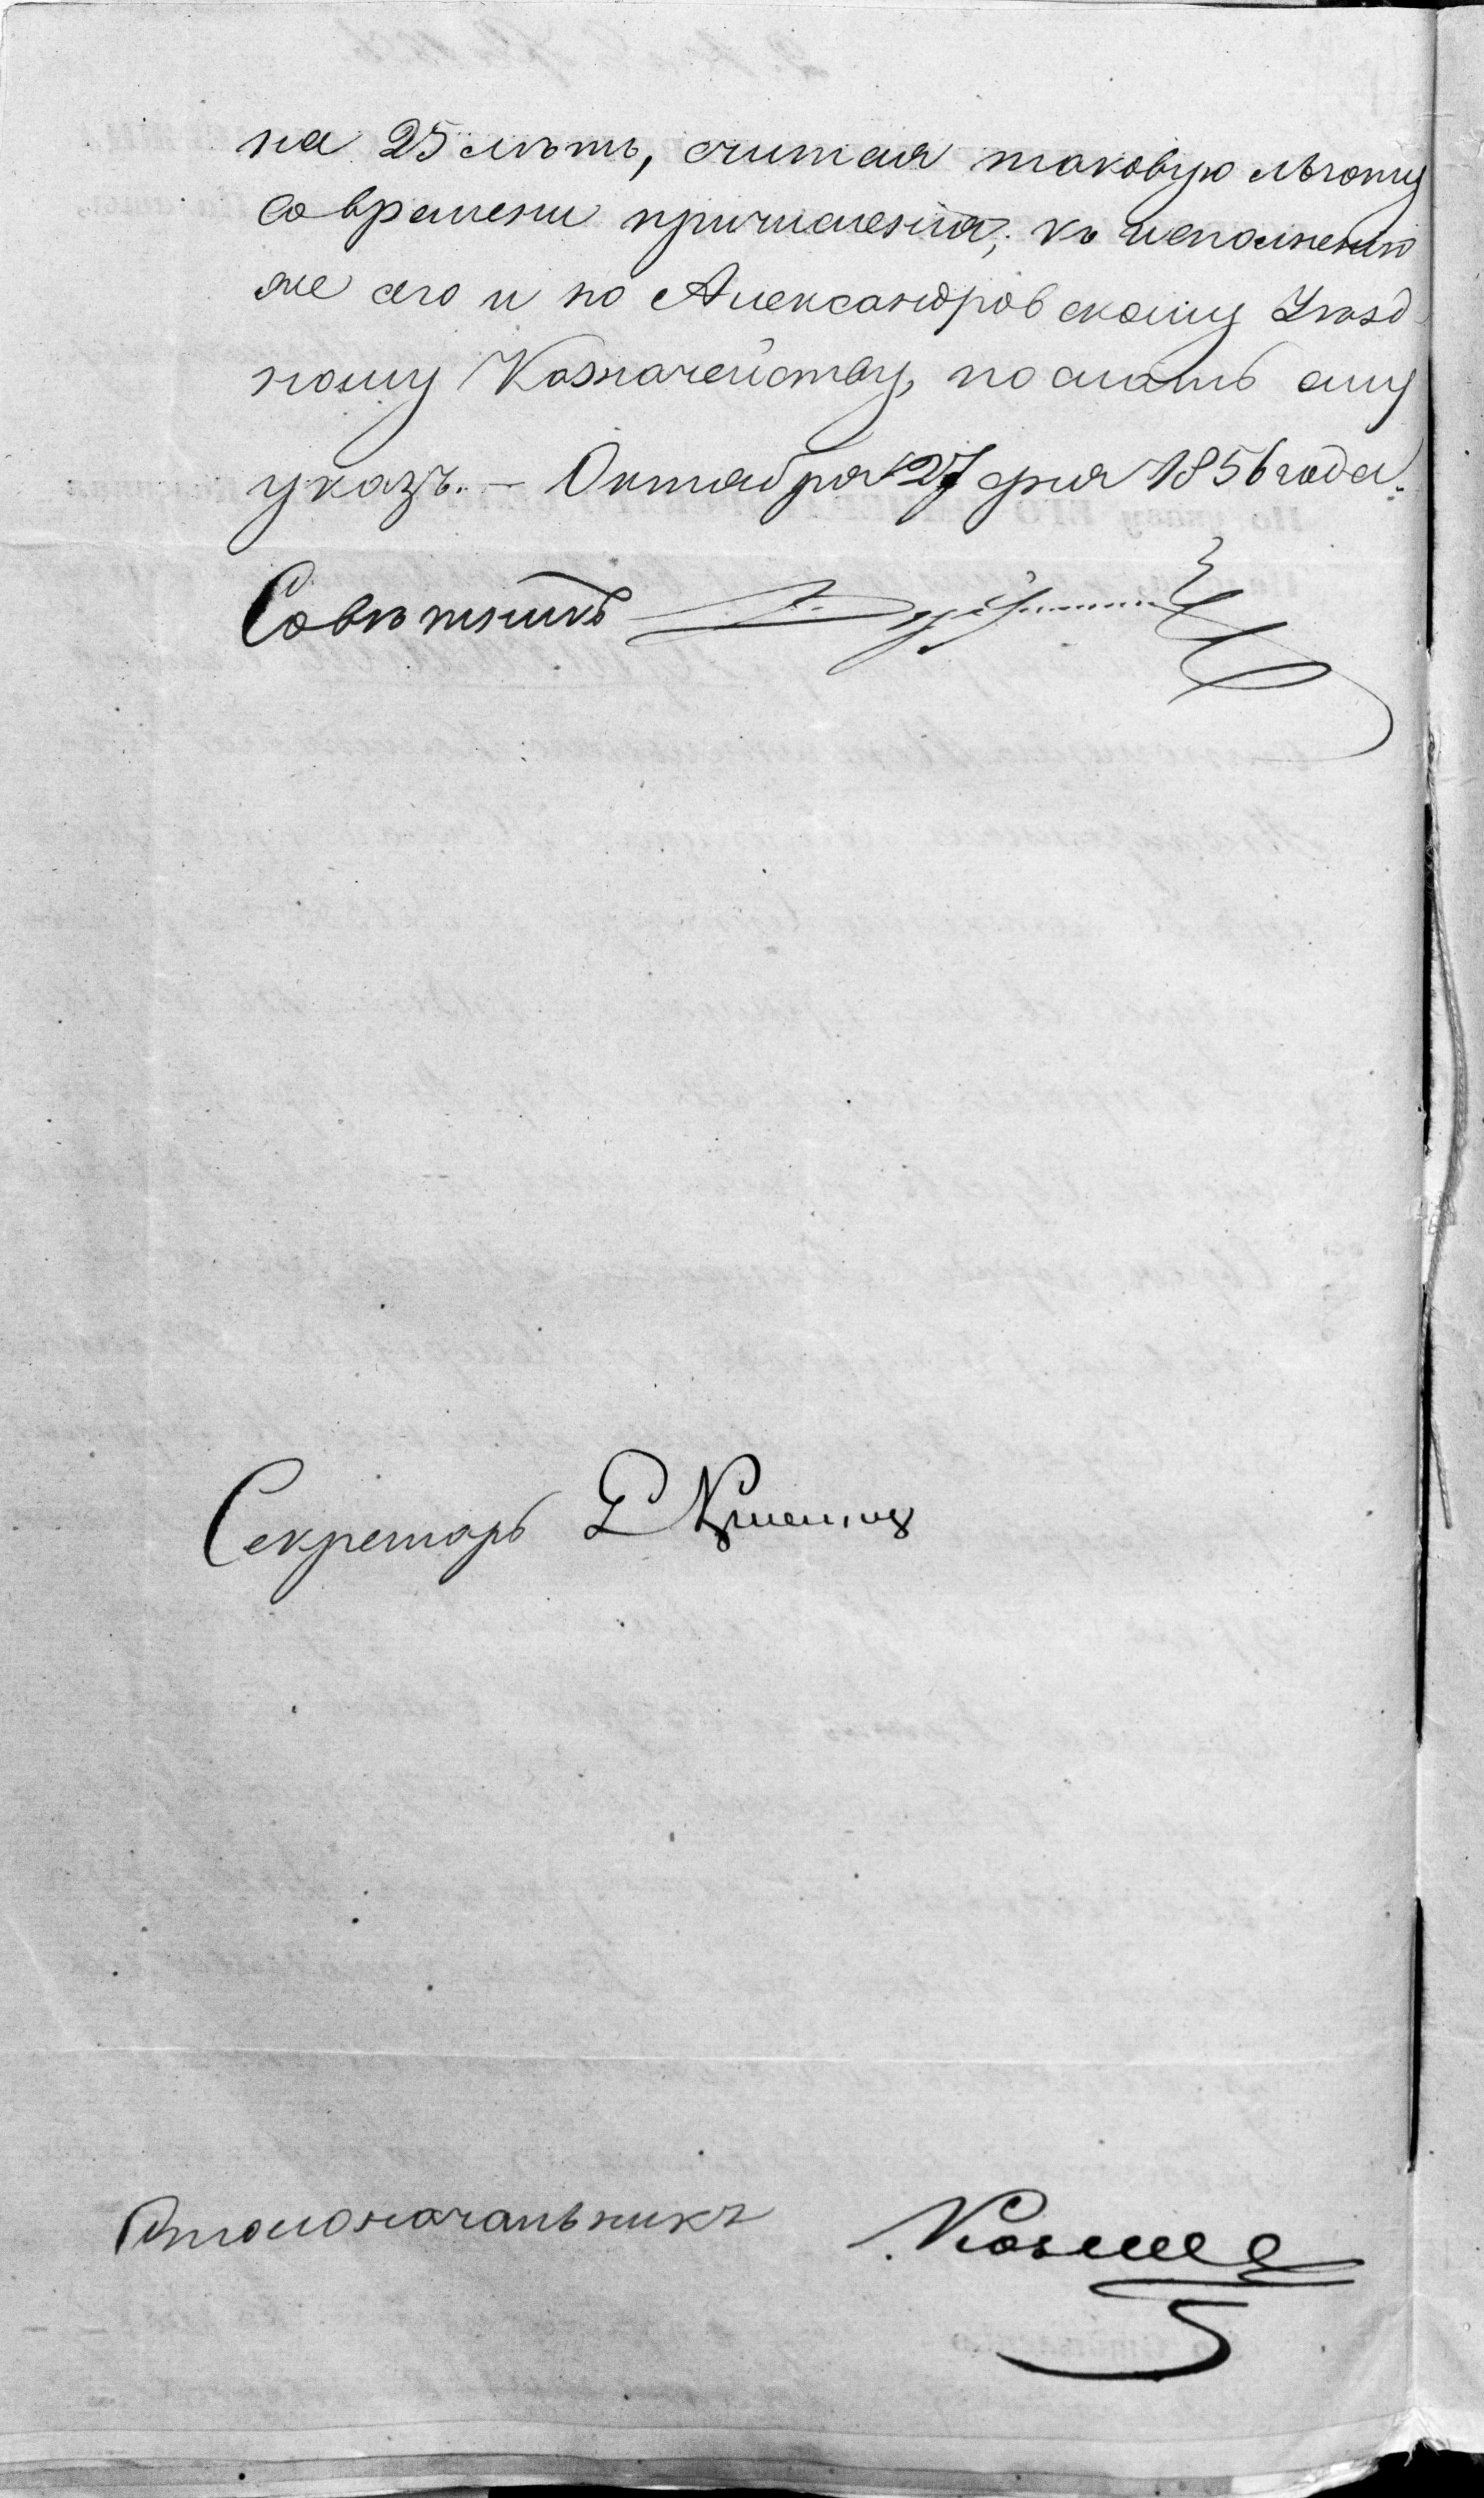 на 25 лѣтъ, считая таковую льготу
со времени причисленія; къ исполненію
же сего и по Александровскому Уѣзд
ному Казначейству, послать ему
указъ. – Октября 27 дня 1856 года.
Совѣтникъ
Секретарь
Столоначальникъ